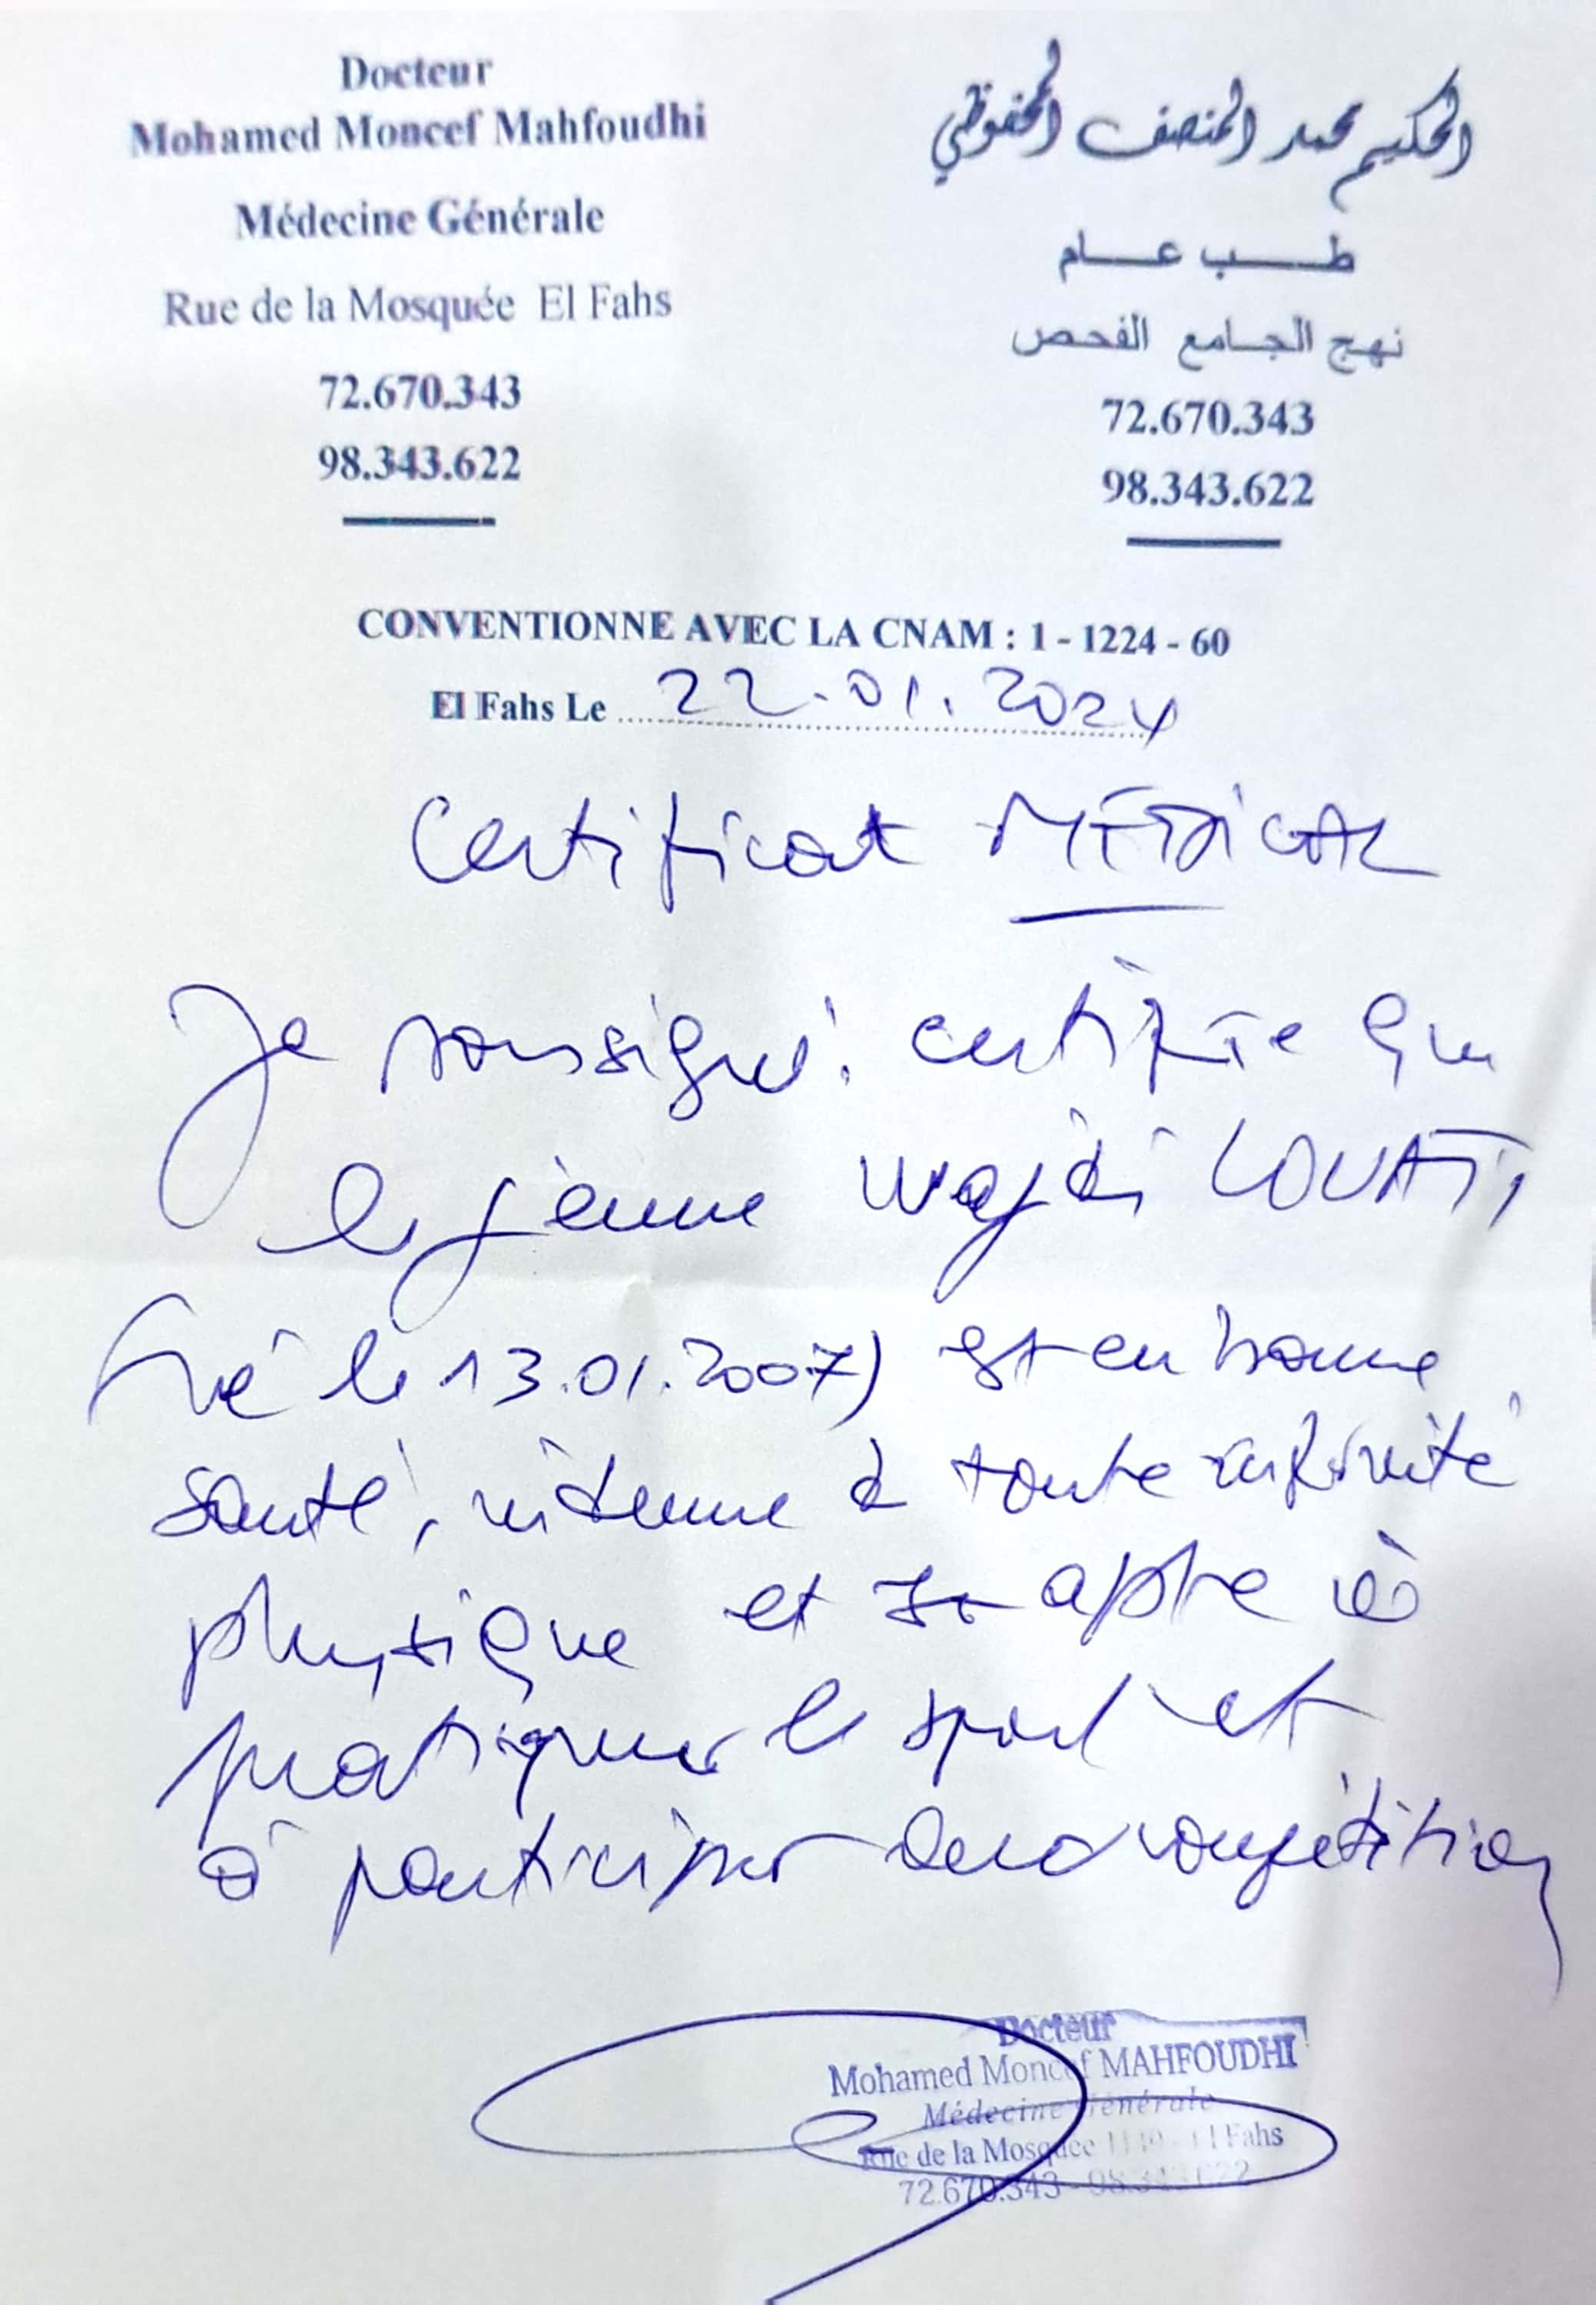 Docteur
Mohamed Moncef Mahfoudhi
Médecine Générale
Rue de la Mosquée El Fahs
72.670.343
98.343.622
الحكيم محمد المنصف المحفوظي
طب عام
نهج الجامع الفحص
72.670.343
98.343.622
CONVENTIONNE AVEC LA CNAM : 1 - 1224 - 60
El Fahs Le 22.01.2024
Certificat MÉDICAL
Je soussigné. certifie que
le jeune Wajdi LOUATI,
(né le 13.01.2007) est en bonne
santé, indemne à toute infirmité
physique et est apte à
pratiquer le sport et
à participer aux compétition
Docteur
Mohamed Moncef MAHFOUDHI
Médecine Générale
Rue de la Mosquée 1140 - El Fahs
72.670.343 - 98.343.622